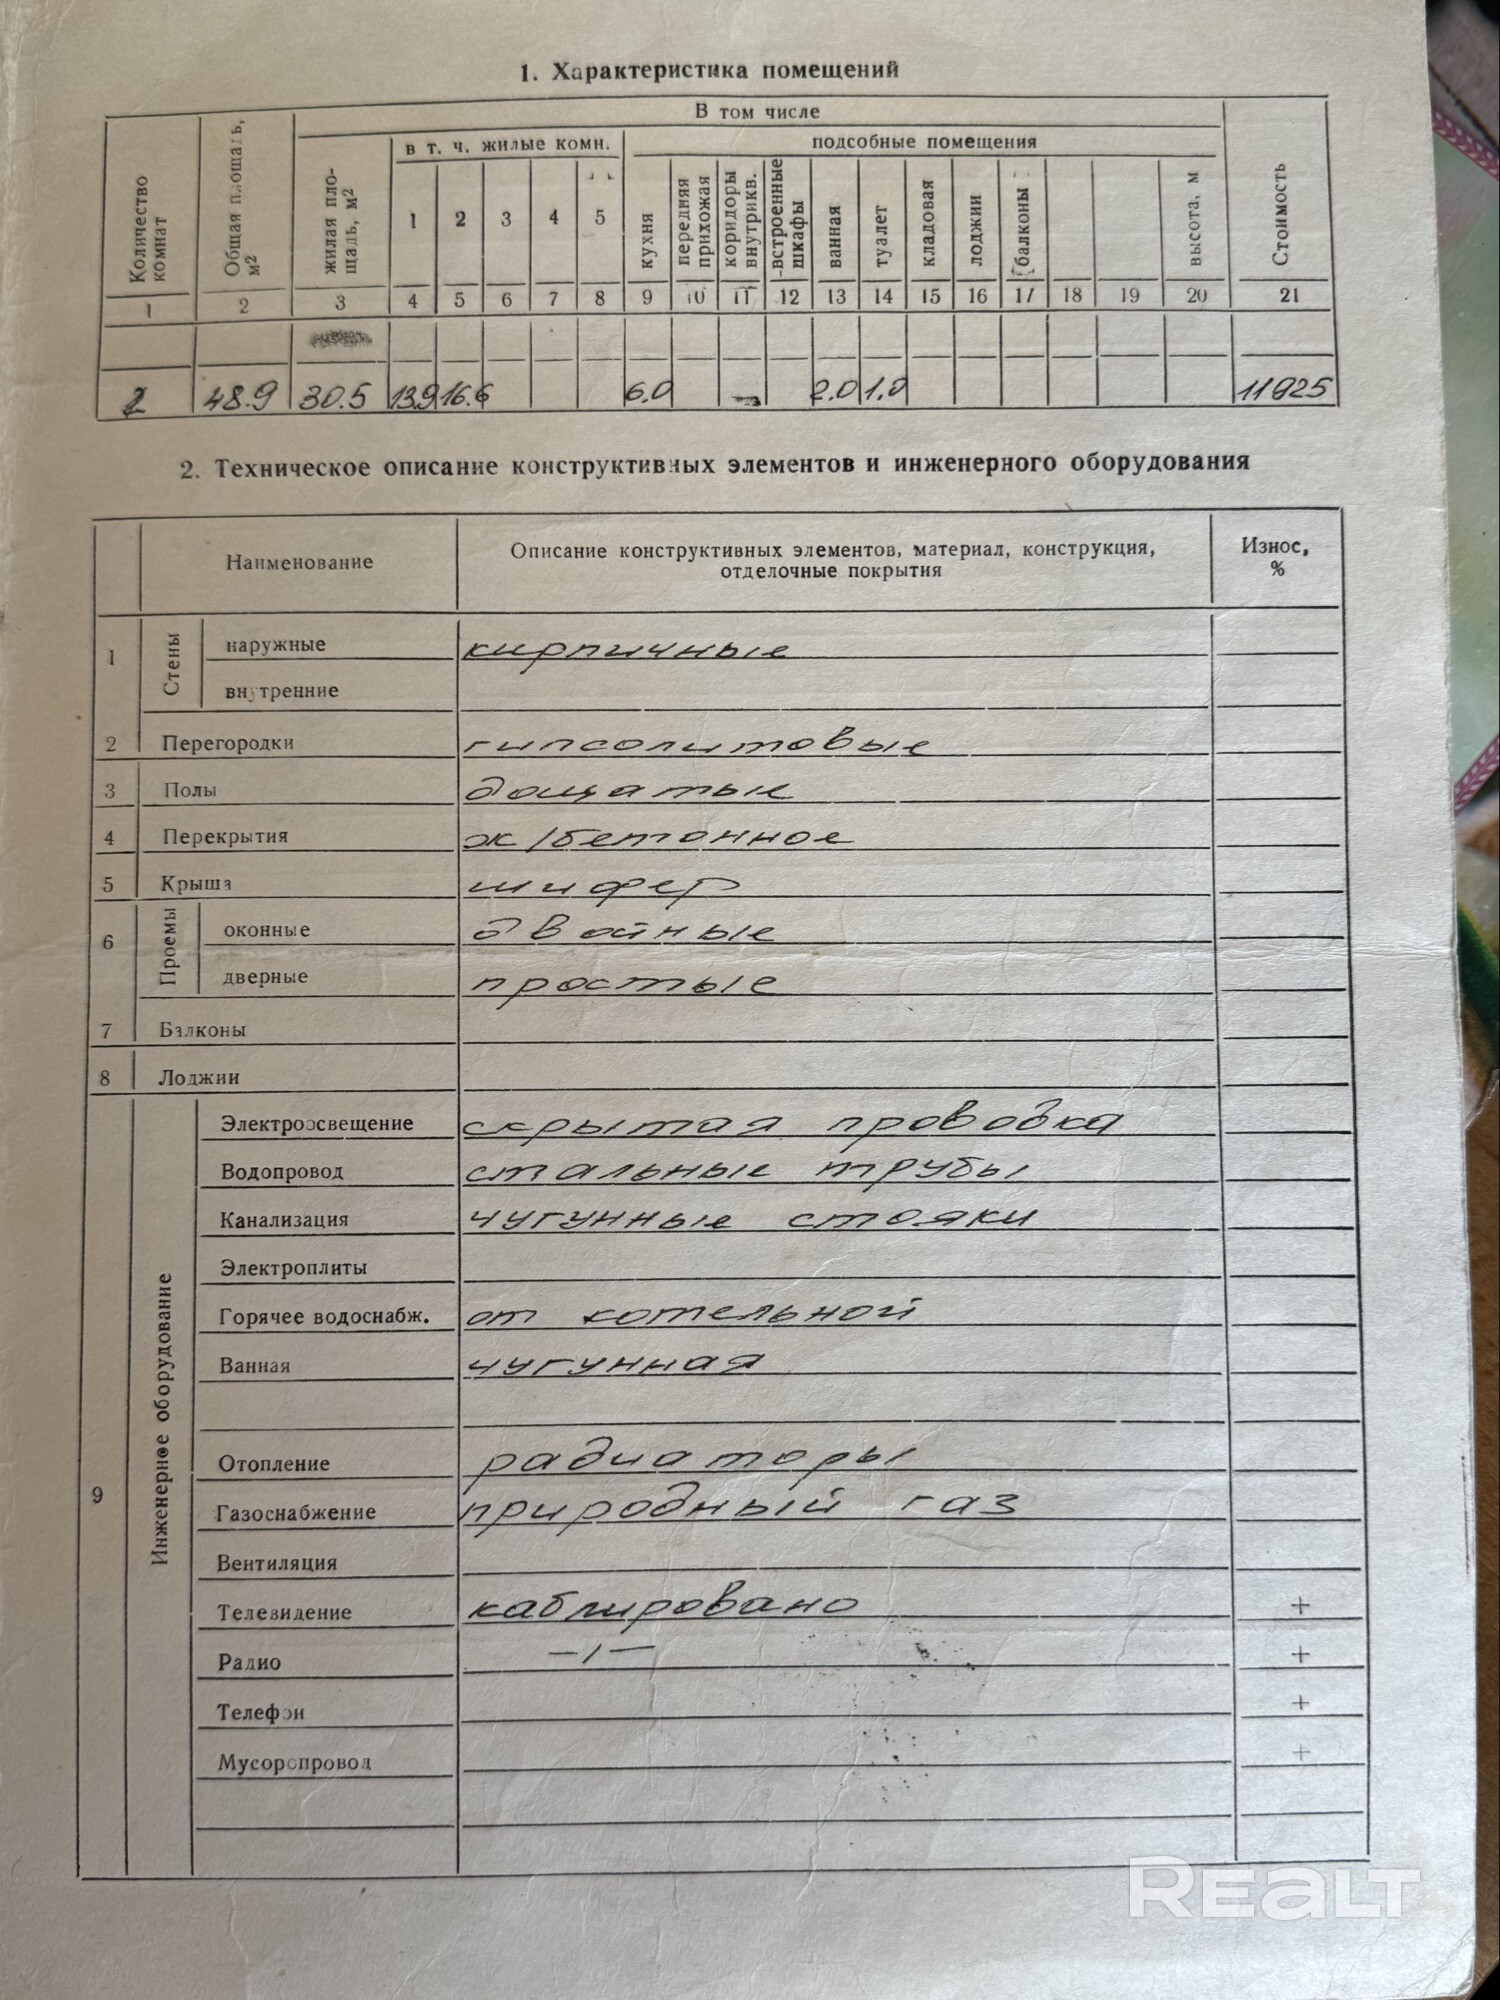 1. Характеристика помещений
В том числе
в т. ч. жилые комн.
подсобные помещения
Количество комнат
Общая площадь, м2
жилая площадь, м2
1 2 3 4 5
кухня
передняя прихожая
коридоры внутрикв.
встроенные шкафы
ванная
туалет
кладовая
лоджии
балконы
высота, м
Стоимость
1 2 3 4 5 6 7 8 9 10 11 12 13 14 15 16 17 18 19 20 21
2 48.9 30.5 13.9 16.6 6.0 2.0 1.0 11925
2. Техническое описание конструктивных элементов и инженерного оборудования
Наименование
Описание конструктивных элементов, материал, конструкция,
отделочные покрытия
Износ,
%
1 Стены наружные кирпичные
внутренние
2 Перегородки гипсолитовые
3 Полы дощатые
4 Перекрытия ж/бетонное
5 Крыша шифер
6 Проемы оконные двойные
дверные простые
7 Балконы
8 Лоджии
9 Инженерное оборудование
Электроосвещение скрытая проводка
Водопровод стальные трубы
Канализация чугунные стояки
Электроплиты
Горячее водоснабж. от котельной
Ванная чугунная
Отопление радиаторы
Газоснабжение природный газ
Вентиляция
Телевидение каблировано +
Радио —/— +
Телефон +
Мусоропровод +
REALT